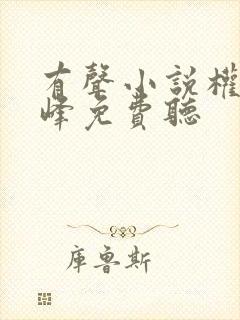 有聲小說權
峰免費聽
庫魯斯